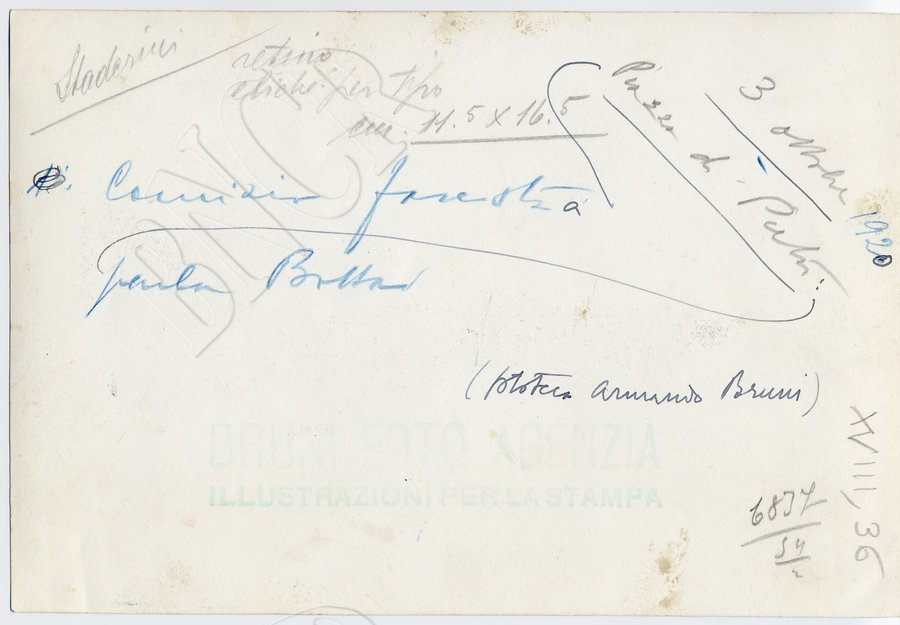 Staderini
retino
cliché per tipo
cm. 11.5 x 16.5
3 ottobre 1920
Piazza di Pietra:
Comizio fascista
parla Bottai
(fototeca Armando Bruni)
BRUNI FOTO AGENZIA
ILLUSTRAZIONI PER LA STAMPA
XVIII, 36
6837